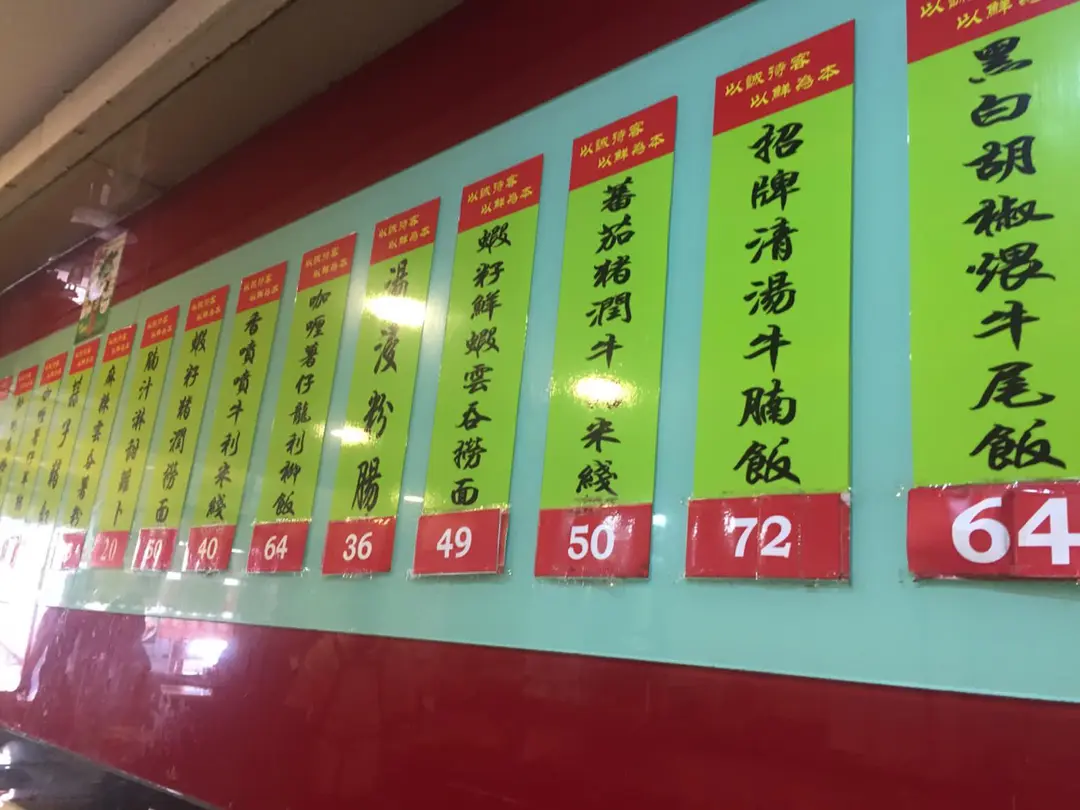 以鮮為
黑白胡椒煨牛尾飯
64
以誠待客
以鮮為本
招牌清湯牛腩飯
72
以誠待客
以鮮為本
蕃茄豬潤牛米綫
50
以誠待客
以鮮為本
蝦籽鮮蝦雲吞撈面
49
以誠待客
以鮮為本
湯浸粉腸
36
以誠待客
以鮮為本
咖喱薯仔龍利柳飯
64
以誠待客
以鮮為本
香噴噴牛利米綫
40
以誠待客
以鮮為本
蝦籽豬潤撈面
50
以誠待客
以鮮為本
腩汁淋甜蘿卜
20
麻辣雲吞薯粉